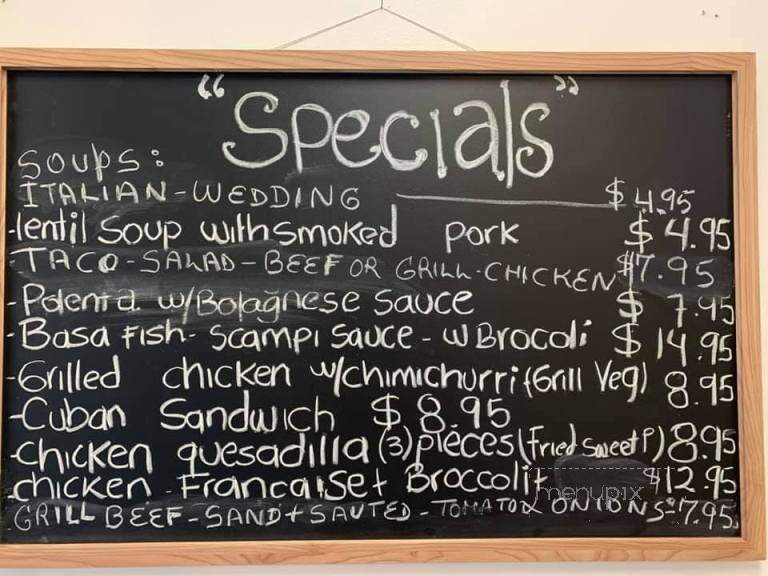 "Specials"
Soups:
ITALIAN-WEDDING $4.95
-lentil Soup with smoked pork $4.95
-TACO-SALAD-BEEF OR GRILL-CHICKEN $7.95
-Polenta w/Bolagnese sauce $7.95
-Basa Fish- Scampi Sauce - w Brocoli $14.95
-Grilled chicken w/chimichurri (Grill Veg) 8.95
-Cuban Sandwich $8.95
-chicken quesadilla (3) pieces (Fried Sweet P) 8.95
-chicken Francaise + Broccoli $12.95
GRILL BEEF-SAND + SAUTED-TOMATOX ONIONS $7.95
menupix